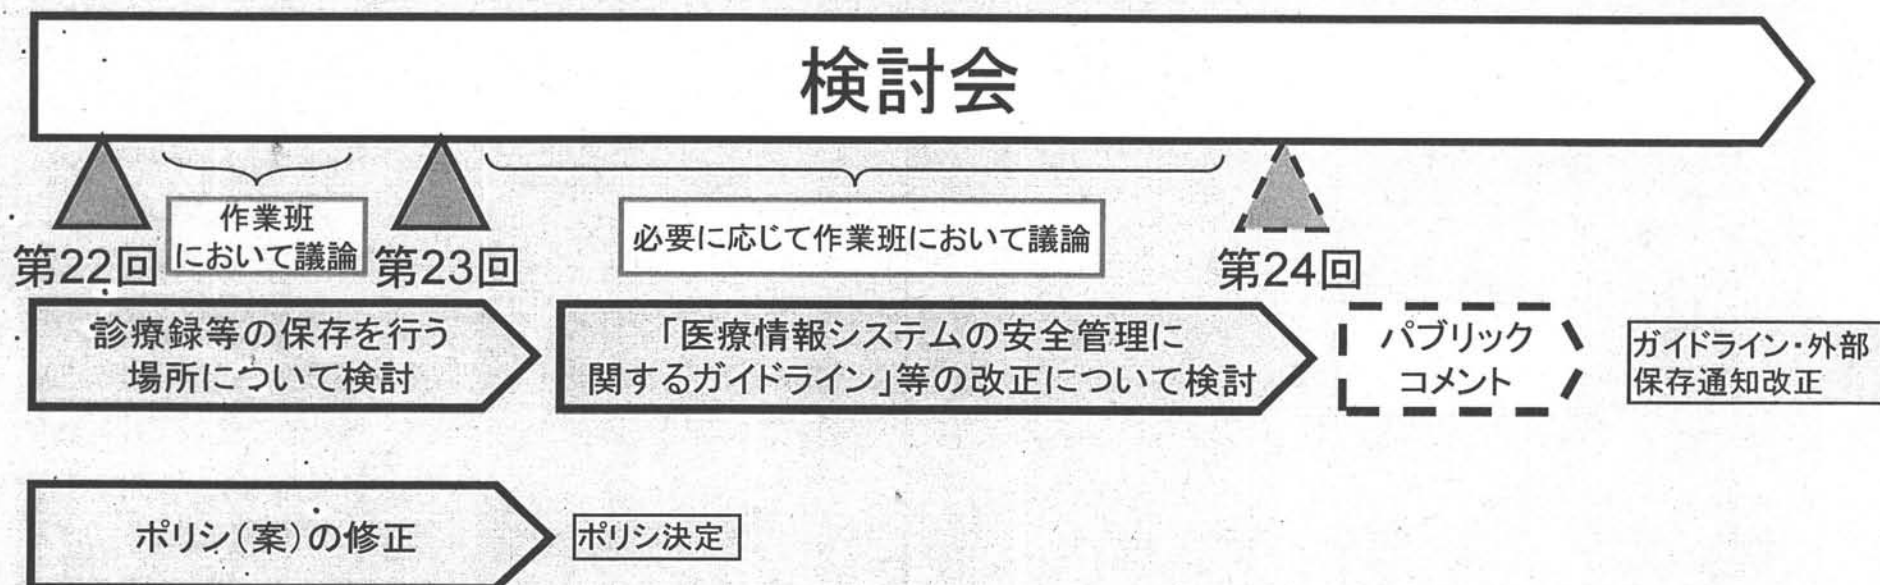 検討会
作業班
において議論
必要に応じて作業班において議論
第22回
第23回
第24回
診療録等の保存を行う
場所について検討
「医療情報システムの安全管理に
関するガイドライン」等の改正について検討
パブリック
コメント
ガイドライン・外部
保存通知改正
ポリシ(案)の修正
ポリシ決定